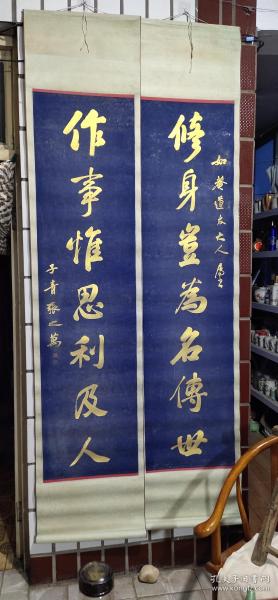 如菴道友大人属
修身豈為名傳世
作事惟思利及人
子青張之萬